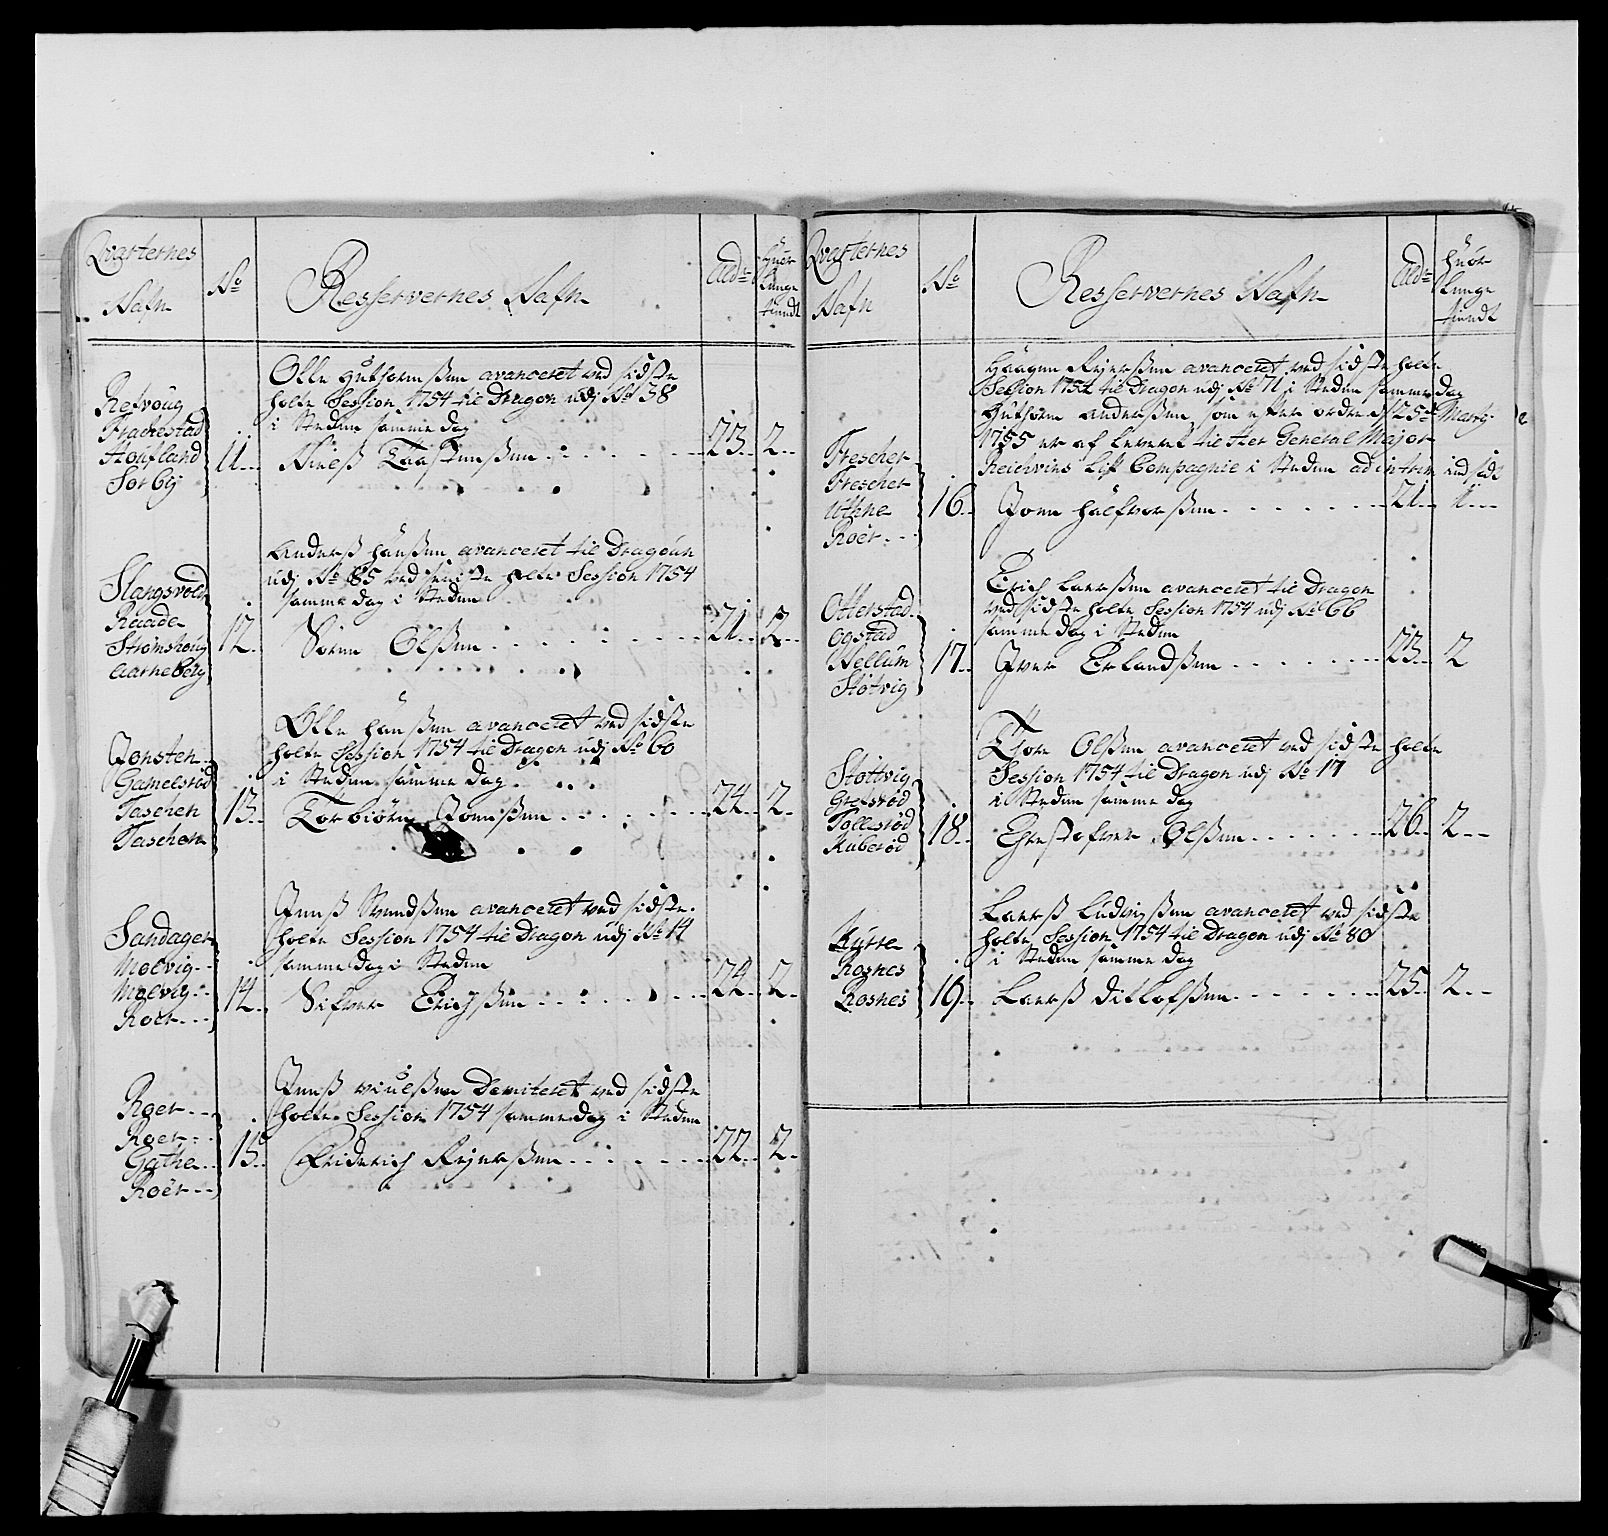 Qvarternes
Nafn
No
Resserverernes Nafn
Ald:
huor
Lenge
tiendt
Refvoug
Frachestad
Houfland
Sorby
11
Olle Guthormsßen avanceret ved sidste
holte Session 1754 til Dragon udj No 38
i Steden samme dag
Nielß Taastensßen
23
2
Slangsvold
Raade
Strømshoug
Aarneberg
12
Anderß Hansßen avanceret til Dragoun
udj No 85 ved seniste holte Session 1754
samme dag i Steden
Søren Olßen
21
2
Jonsten
Gamelsrød
Taschen
Taschen
13
Olle Hansßen avanceret ved sidste
holte Session 1754 til Dragon udj No 60
i Steden samme dag
Torbiørn Joensßen
24
2
Sandager
Molvig
Molvig
Roer
14
Jenß Svendßen avanceret ved sidste
holte Session 1754 til Dragon udj No 14
samme dag i Steden
Sifver Erichßen
24
2
Roer
Roer
Gathe
Roer
15
Jenß Nielßen Demiteret ved sidste
holte Session 1754 samme dag i Steden
Friderich Rejerßen
22
2
Qvarternes
Nafn
No
Resserverernes Nafn
Ald:
huor
Lenge
tiendt
Frescher
Frescher
Uthne
Roer
16
Haagen Rejerßen avanceret ved sidste holte
Session 1754 til Dragon udj No 71 i Steden samme dag
Guthorm Anderßen, som efter ordre af 25de Martj
1755 er af leveret til Her General Major
Reichvins Lif Compagnie i Steden ad intrim ind sadt
Joen Halfvorßen
21
1
Otterstad
Ogstad
Mellum
Støtvig
17
Erich Larßen avanceret til Dragon
ved sidste holte Session 1754 udj No 66
samme dag i Steden
Iver Erlandßen
23
2
Støttvig
Grefsrød
Tollesrød
Kuberød
18
Tjøer Olßen avanceret ved sidste holte
Session 1754 til Dragon udj No 17
i Steden samme dag
Chrestofver Olßen
26
2
Rørre
Rosnes
Rosnes
19
Larß Ludvigßen avanceret ved sidste
holte Session 1754 til Dragon udj No 80
i Steden samme dag
Larß Ditlofßen
25
2